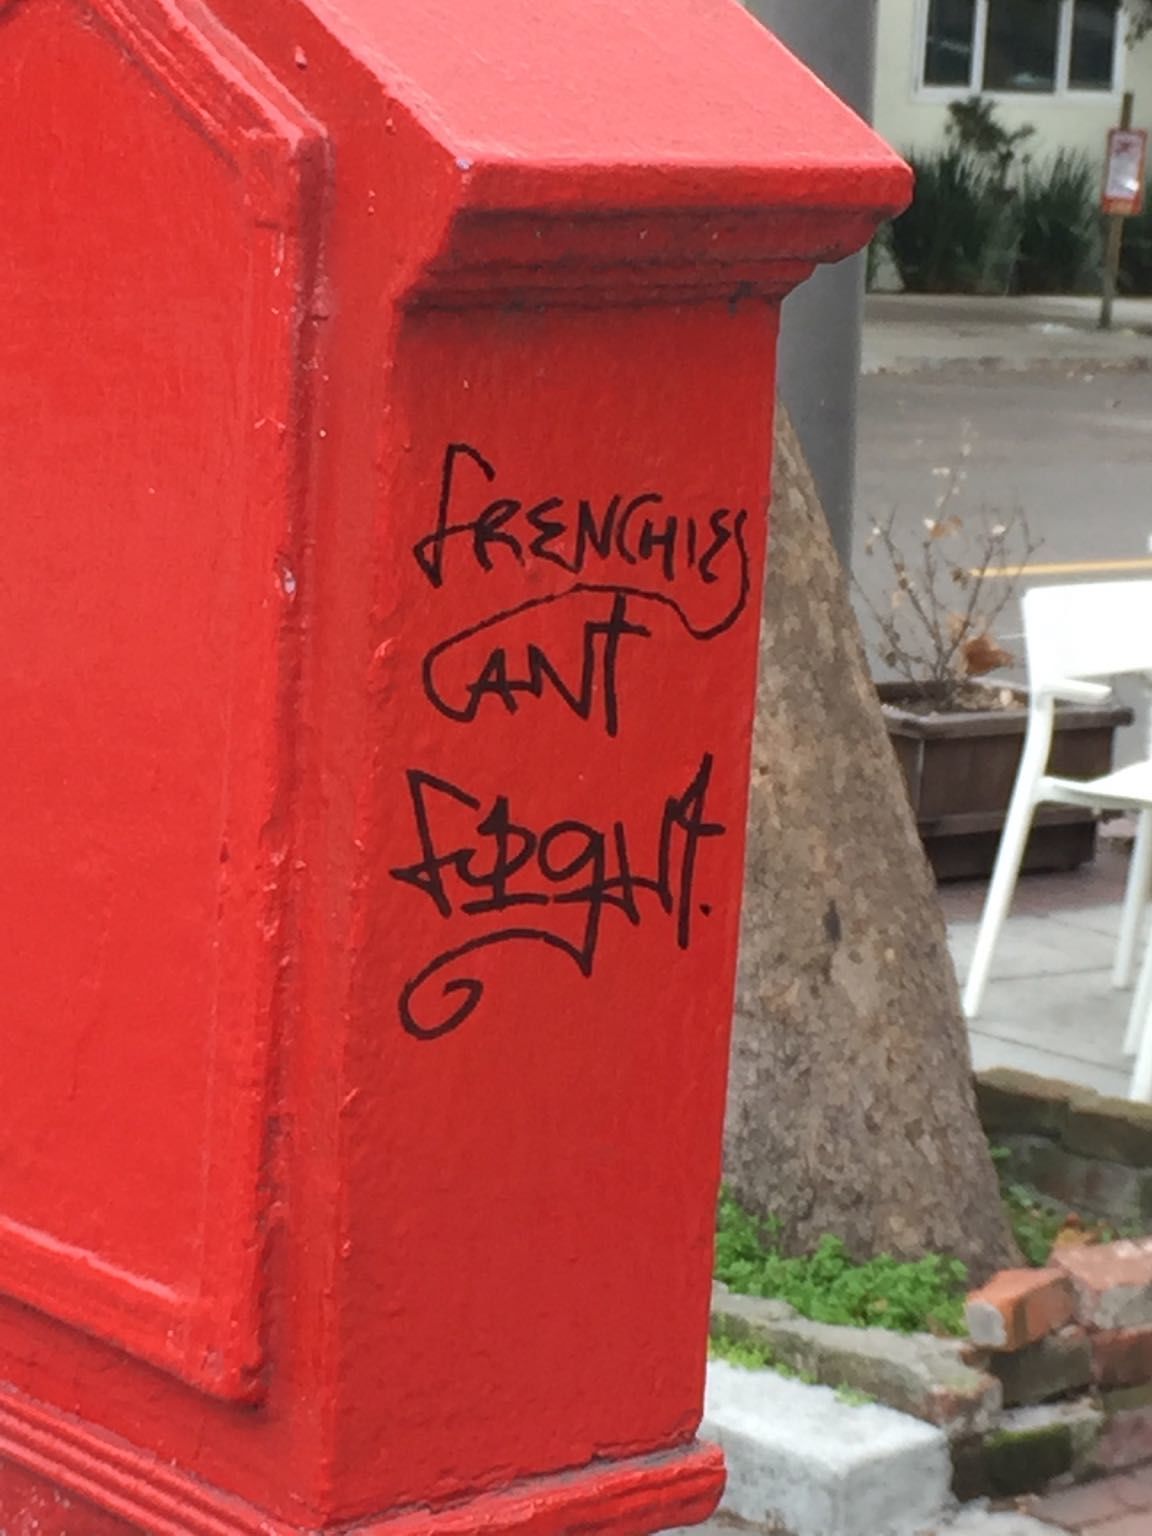 FRENCHIES
CANT
FIGHT.